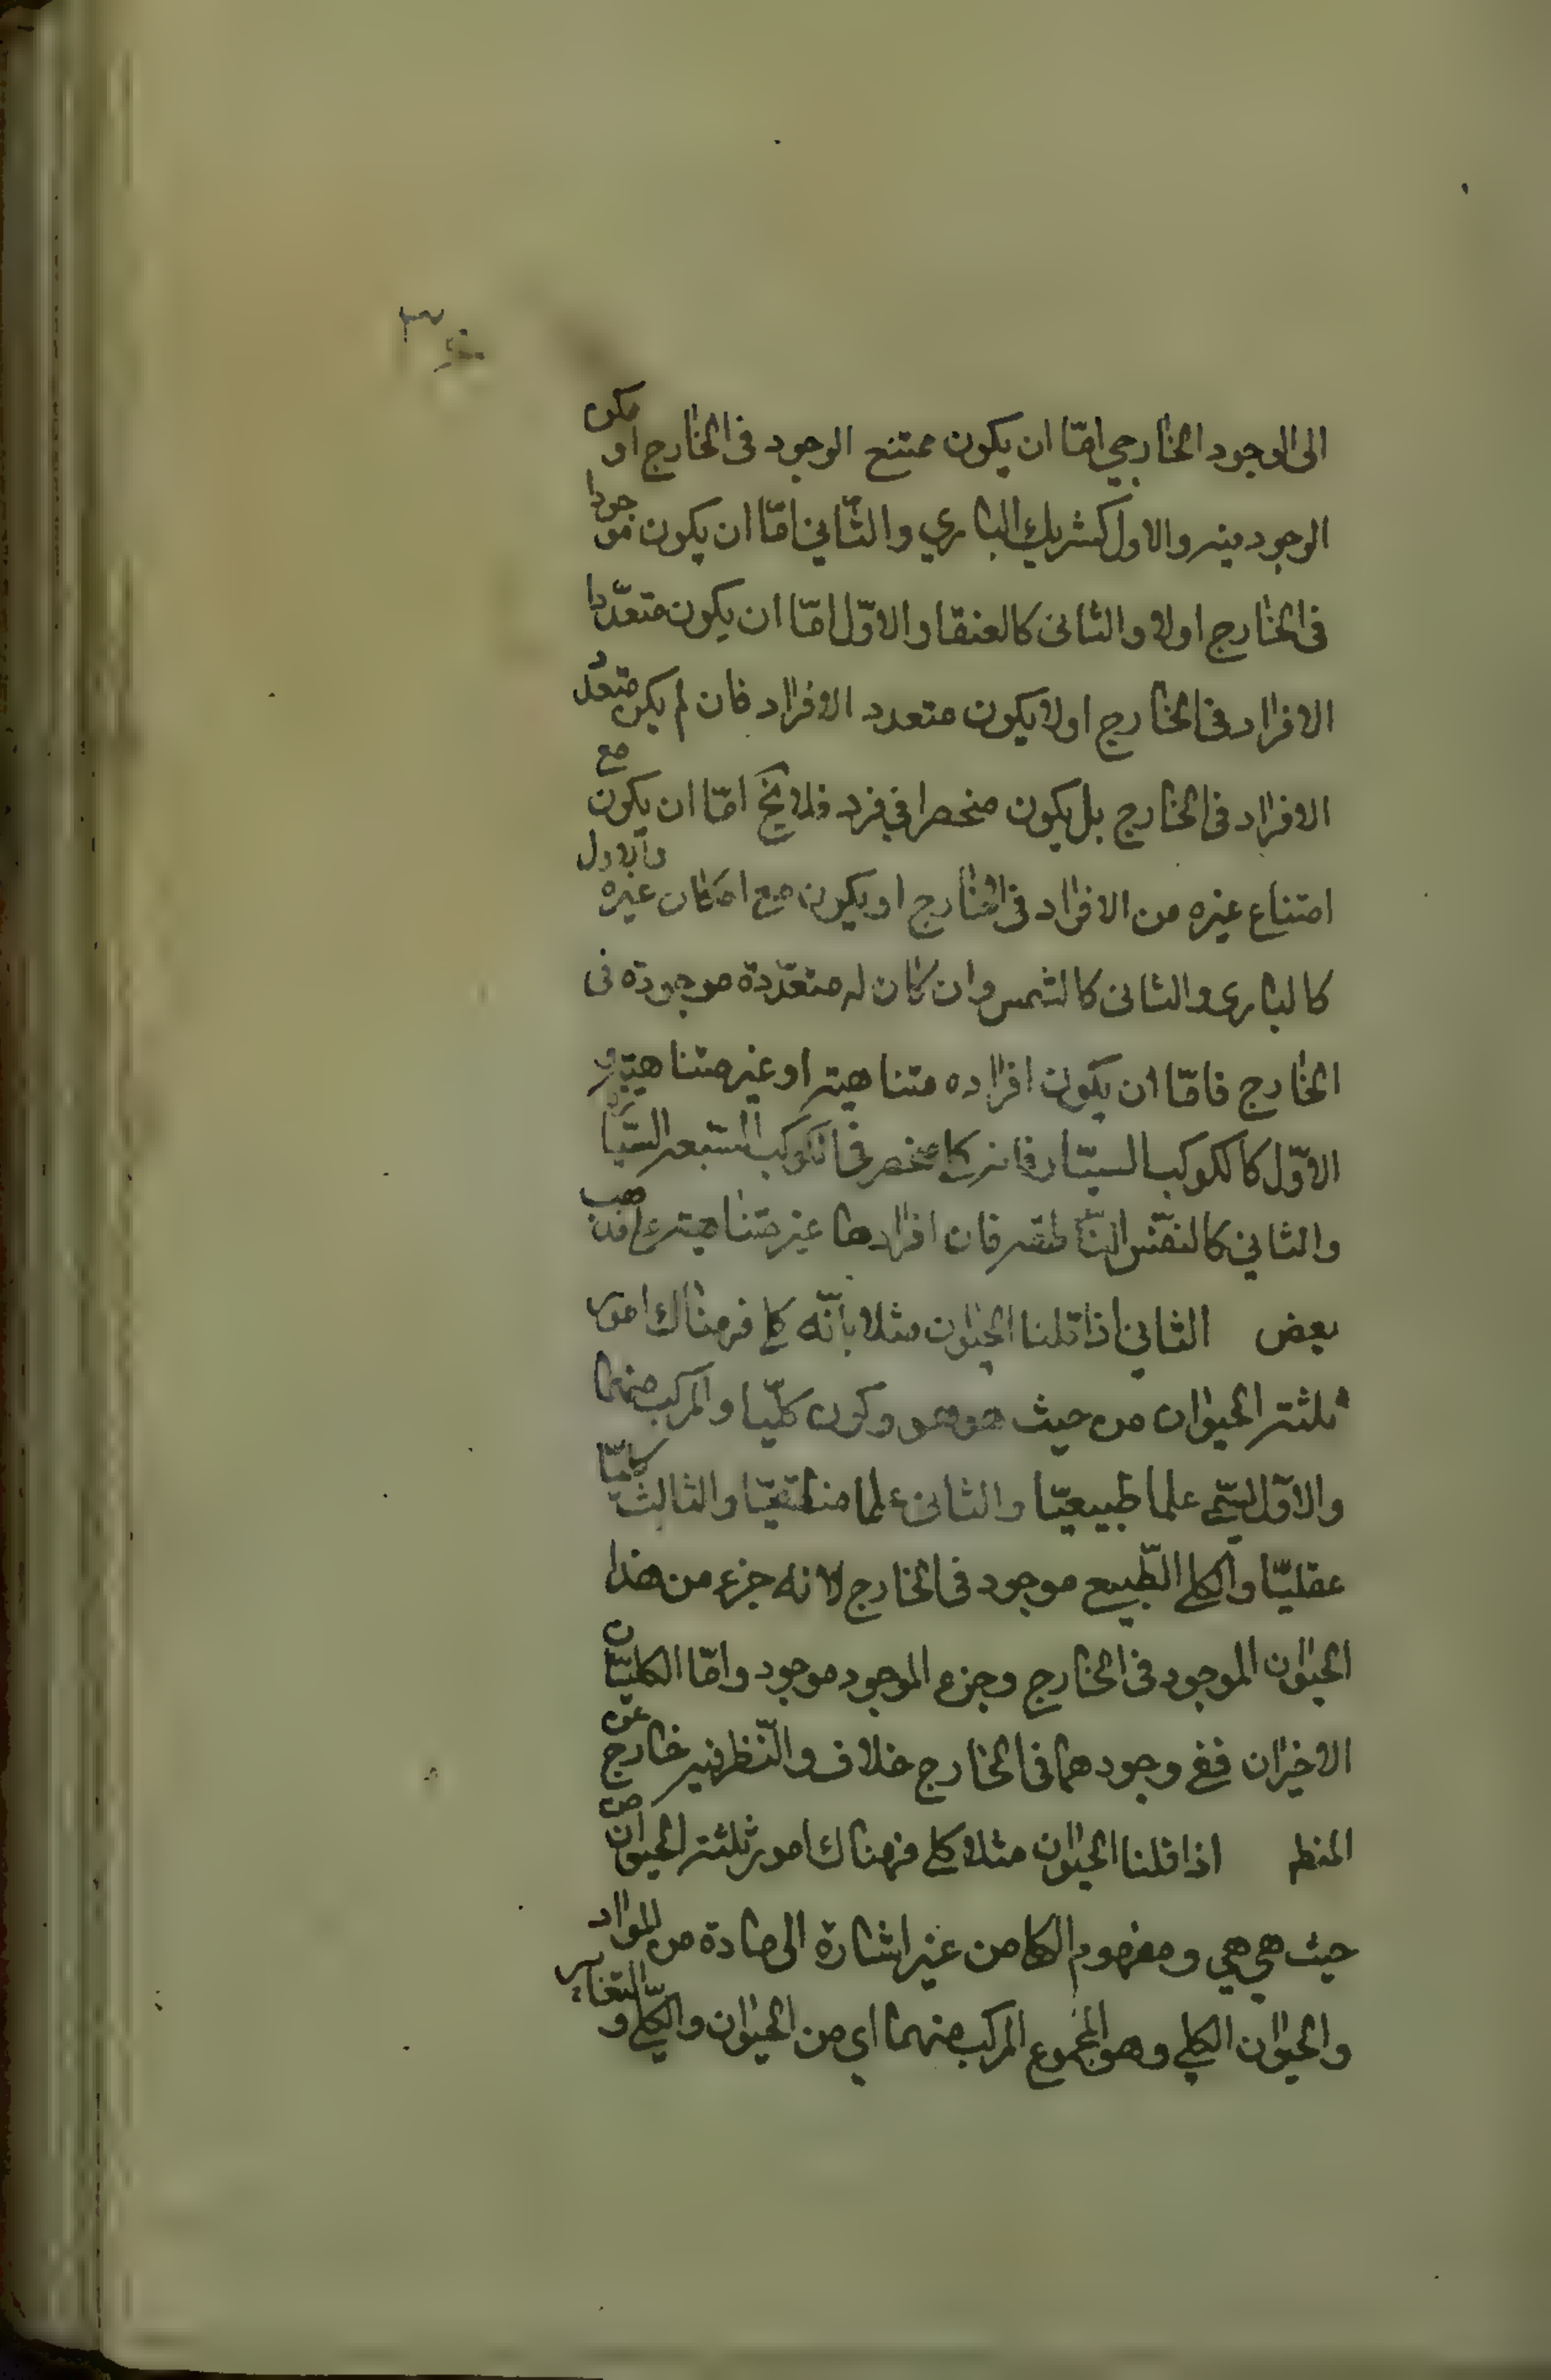 الى الوجود الخارجي امّا ان يكون ممتنع الوجود فى الخارج او ممكن
الوجود فيه والاول كشريك الباري والثّاني امّا ان يكون موجودا
فى الخارج اولا والثانى كالعنقا والاوّل امّا ان يكون متعدّدا
الافراد فى الخارج اولا يكون متعدد الافراد فان لم يكن متعدد
الافراد فى الخارج بل يكون منحصرا في فرد فلا يخ امّا ان يكون مع
امتناع غيره من الافراد فى الخارج او يكون مع امكان غيره والاول
كالبارى والثانى كالشمس وان كان له متعدّدة موجودة فى
الخارج فامّا ان يكون افراده متناهية او غير متناهية و
الاوّل كالكوكب السيّار فانه كلي منحصر فى الكوكب السبعة السيّارة
والثاني كالنفس النّاطقه فان افرادها غير متناهية على مذهب
بعض الثاني اذا قلنا الحيوان مثلا بانّه كلي فهناك امور
ثلثة الحيوان من حيث هو هو وكون كليّا والمركب منهما
والاوّل يسمّى علما طبيعيّا والثانى علما منطقيّا والثالث كليّا
عقليّا والكلي الطّبيع موجود فى الخارج لانه جزء من هذا
الحيوان الموجود فى الخارج وجزء الموجود موجود وامّا الكليّان
الاخيران ففي وجودهما فى الخارج خلاف والنّظر فيه خارج عن
المنط اذا قلنا الحيوان مثلا كلي فهناك امور ثلثة الحيوان من
حيث هي هي ومفهوم الكلي من غير اشارة الى مادة من المواد
والحيوان الكلي وهو المجموع المركب منهما اي من الحيوان والكلّي و التغاير